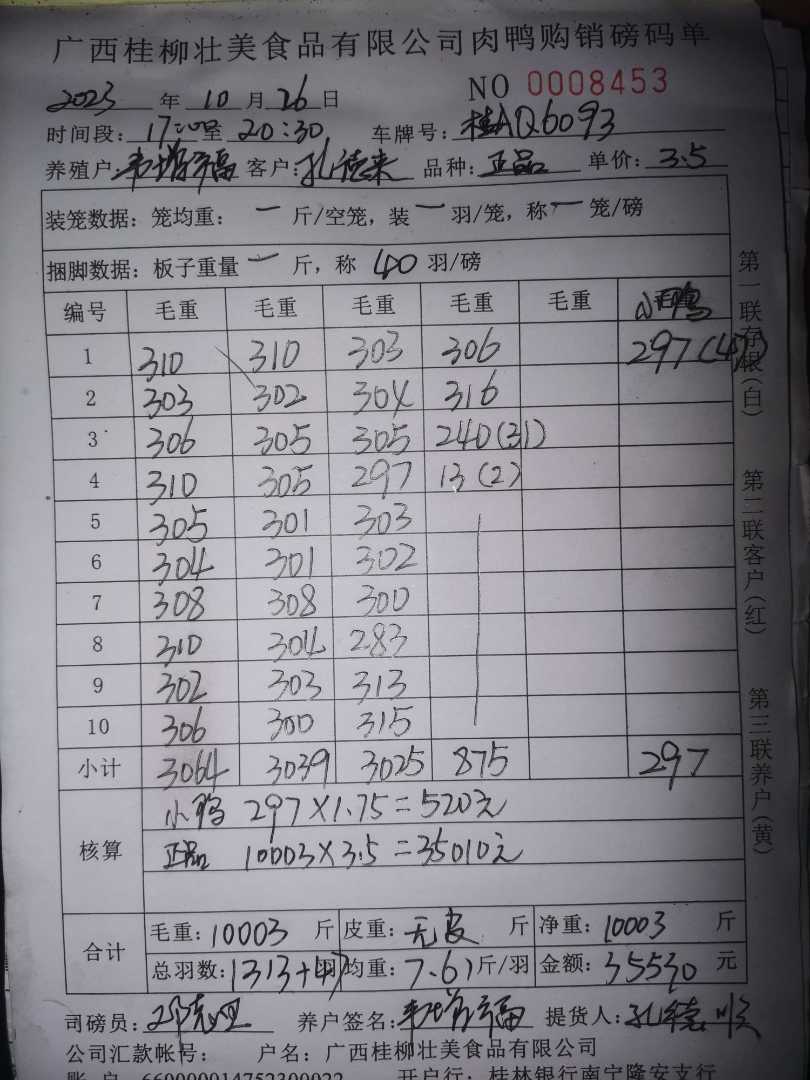 广西桂柳壮美食品有限公司肉鸭购销磅码单
NO 0008453
2023年10月26日
时间段：17:00至20:30 车牌号：桂AQ6093
养殖户：韦增福 客户：孔德来 品种：正品 单价：3.5
装笼数据：笼均重：一斤/空笼，装一羽/笼，称一笼/磅
捆脚数据：板子重量一斤，称40羽/磅
编号 毛重 毛重 毛重 毛重 毛重 小鸭
1 310 310 303 306 297(47)
2 303 302 304 316
3 306 305 305 240(31)
4 310 305 297 13(2)
5 305 301 303
6 304 301 302
7 308 308 300
8 310 304 283
9 302 303 313
10 306 300 315
小计 3064 3039 3025 875 297
核算 小鸭 297×1.75=520元
正品 10003×3.5=35010元
合计 毛重：10003斤 皮重：无皮斤 净重：10003斤
总羽数：1313+47羽 均重：7.61斤/羽 金额：35530元
司磅员： 养户签名：韦增福 提货人：孔德顺
公司汇款帐号： 户名：广西桂柳壮美食品有限公司
账户 660000014752300022 开户行：桂林银行南宁隆安支行
第一联存根(白)
第二联客户(红)
第三联养户(黄)